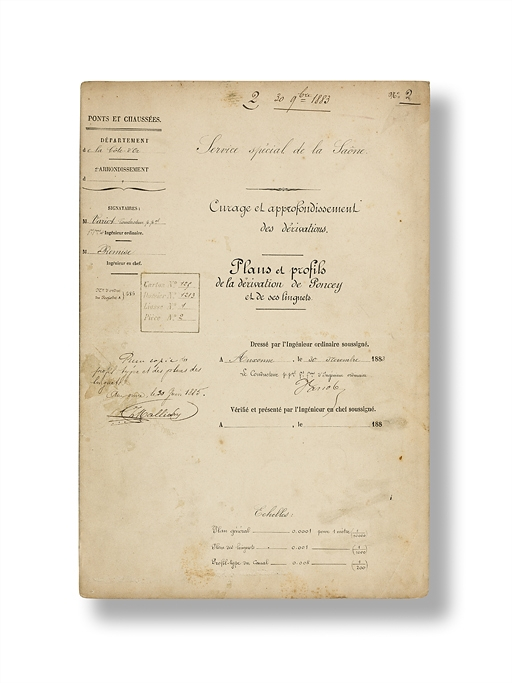 2 30 9bre 1883
No 2
PONTS ET CHAUSSÉES.
DÉPARTEMENT
de la Côte-d'Or
ARRONDISSEMENT
d
SIGNATAIRES:
M Variot Conducteur p. pal
Ingénieur ordinaire.
M
Ingénieur en chef.
Carton No 125
Dossier No 1213
Liasse No 1
Pièce No 2
Pour copie du
profil type et des plans des
linguets
le 20 Juin 1885.
Service spécial de la Saône.
Curage et approfondissement
des dérivations.
Plans et profils
de la dérivation de Poncey
et de ses linguets
Dressé par l'Ingénieur ordinaire soussigné.
A Auxonne, le 30 novembre 1883
Le Conducteur p. pal f. f. d'Ingénieur ordinaire
Vérifié et présenté par l'Ingénieur en chef soussigné.
A , le 188
Echelles:
Plan général 0.0001 pour 1 mètre (1/10000)
Plans des linguets 0.001 (1/1000)
Profil-type du Canal 0.005 (1/200)